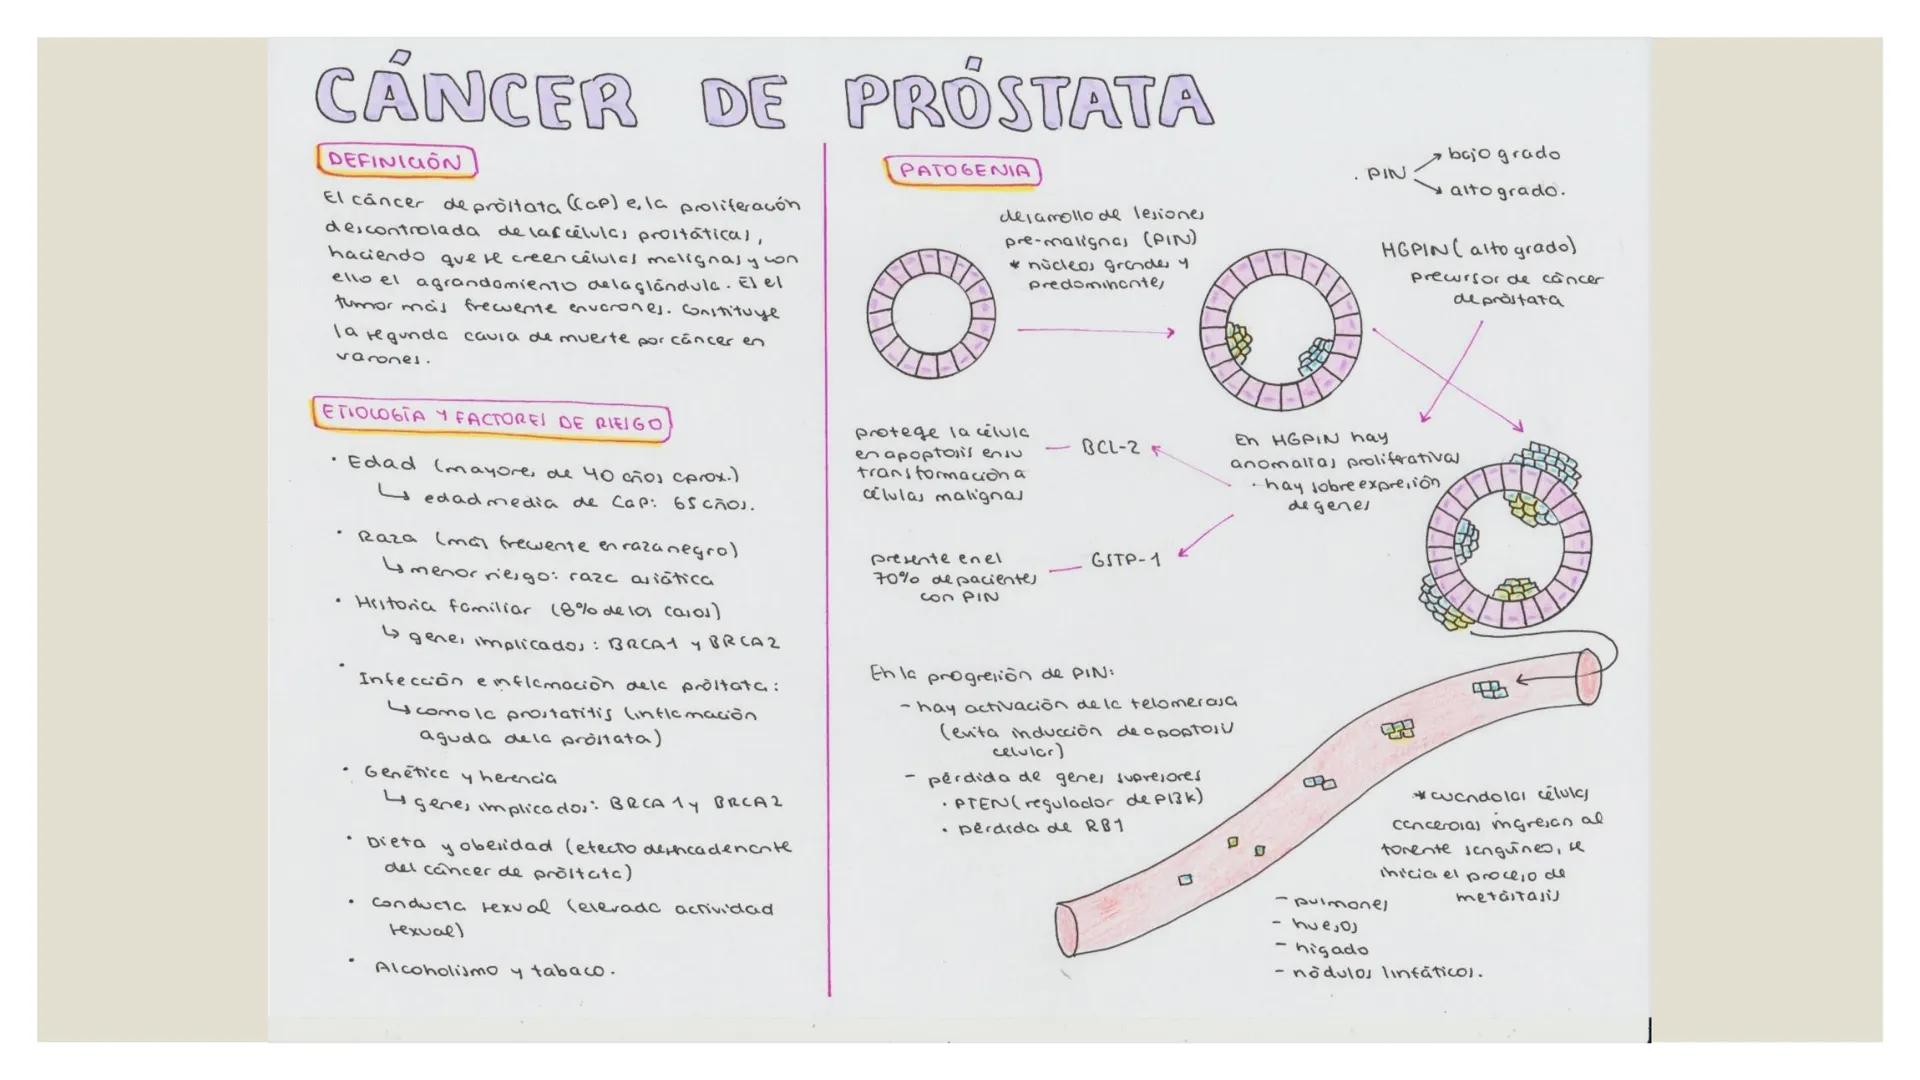 CÁNCER DE PRÓSTATA
DEFINICIÓN
El cáncer de próstata (CaP) es la proliferación
descontrolada de las células prostáticas,
haciendo que se creen células malignas y con
ello el agrandamiento de la glándula. Es el
tumor más frecuente en varones. Constituye
la segunda causa de muerte por cáncer en
varones.
ETIOLOGÍA Y FACTORES DE RIESGO
• Edad (mayores de 40 años aprox.)
↳ edad media de CaP: 65 años.
• Raza (más frecuente en raza negra)
↳ menor riesgo: raza asiática
• Historia familiar (8% de los casos)
↳ genes implicados: BRCA1 y BRCA2
• Infección e inflamación de la próstata:
↳ como la prostatitis (inflamación
aguda de la próstata)
• Genética y herencia
↳ genes implicados: BRCA1 y BRCA2
• Dieta y obesidad (efecto desencadenante
del cáncer de próstata)
• Conducta sexual (elevada actividad
sexual)
• Alcoholismo y tabaco.
PATOGENIA
. PIN
bajo grado
alto grado.
desarrollo de lesiones
pre-malignas (PIN)
* núcleos grandes y
predominantes
HGPIN (alto grado)
precursor de cáncer
de próstata
protege la célula
en apoptosis en su
transformación a
células malignas
— BCL-2
En HGPIN hay
anomalías proliferativas
- hay sobreexpresión
de genes
presente en el
70% de pacientes
con PIN
— GSTP-1
En la progresión de PIN:
- hay activación de la telomerasa
(evita inducción de apoptosis
celular)
- pérdida de genes supresores
• PTEN (regulador de PI3K)
• pérdida de RB1
* cuando las células
cancerosas ingresan al
torrente sanguíneo, se
inicia el proceso de
metástasis
- pulmones
- huesos
- hígado
- nódulos linfáticos.